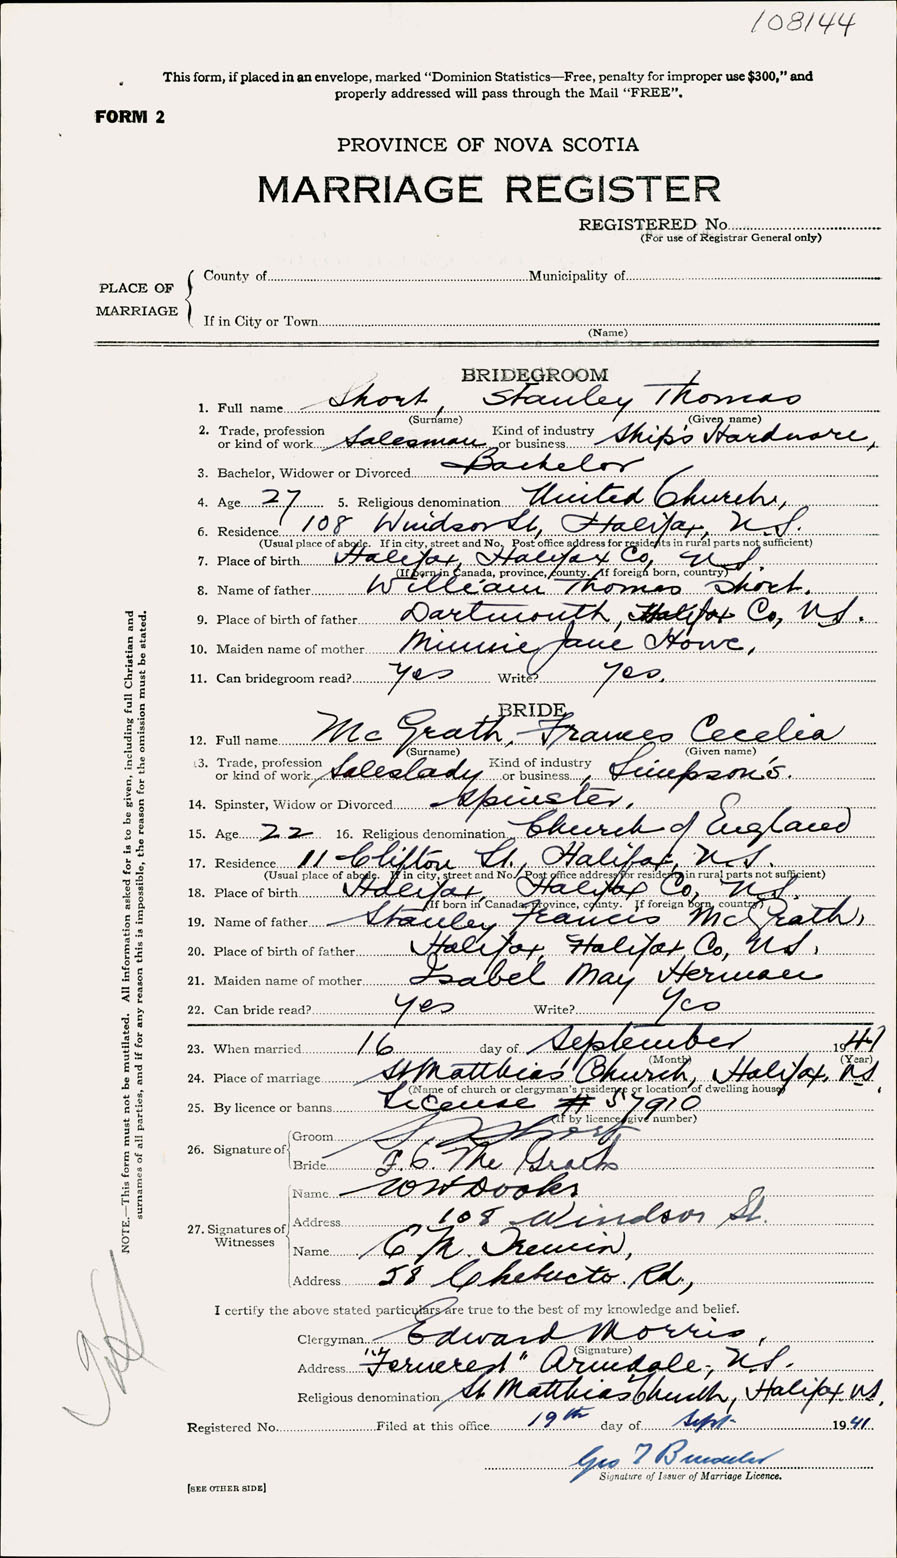 108144
This form, if placed in an envelope, marked "Dominion Statistics—Free, penalty for improper use $300," and
properly addressed will pass through the Mail "FREE".
FORM 2
PROVINCE OF NOVA SCOTIA
MARRIAGE REGISTER
REGISTERED No.
(For use of Registrar General only)
PLACE OF MARRIAGE
County of Municipality of
If in City or Town
(Name)
BRIDEGROOM
1. Full name Short, Stanley Thomas
(Surname) (Given name)
2. Trade, profession or kind of work Salesman Kind of industry or business Ship's Hardware,
3. Bachelor, Widower or Divorced Bachelor
4. Age 27 5. Religious denomination United Church,
6. Residence 108 Windsor St, Halifax, N.S.
(Usual place of abode. If in city, street and No. Post office address for residents in rural parts not sufficient)
7. Place of birth Halifax, Halifax Co, N.S.
(If born in Canada, province, county. If foreign born, country)
8. Name of father William Thomas Short.
9. Place of birth of father Dartmouth, Halifax Co, N.S.
10. Maiden name of mother Minnie Jane Howe,
11. Can bridegroom read? Yes Write? Yes.
BRIDE
12. Full name McGrath, Frances Cecelia
(Surname) (Given name)
13. Trade, profession or kind of work Saleslady Kind of industry or business, Simpson's.
14. Spinster, Widow or Divorced Spinster,
15. Age 22 16. Religious denomination Church of England
17. Residence 11 Clifton St., Halifax, N.S.
(Usual place of abode. If in city, street and No. Post office address for residents in rural parts not sufficient)
18. Place of birth Halifax, Halifax Co, N.S.
(If born in Canada, province, county. If foreign born, country)
19. Name of father Stanley Francis McGrath,
20. Place of birth of father Halifax, Halifax Co, N.S.
21. Maiden name of mother Isabel May Herman
22. Can bride read? Yes Write? Yes
23. When married 16 day of September 1941
(Month) (Year)
24. Place of marriage St Matthias' Church, Halifax, N.S.
(Name of church or clergyman's residence or location of dwelling house)
25. By licence or banns License # 57910
(If by licence give number)
26. Signature of Groom S Short
Bride F. C. Mc Grath
27. Signatures of Witnesses
Name
Address 108 Windsor St.
Name C M.
Address 58 Chebucto Rd,
I certify the above stated particulars are true to the best of my knowledge and belief.
Clergyman Edward Morris,
(Signature)
Address Armdale, N.S.
Religious denomination St Matthias Church, Halifax N.S,
Registered No. Filed at this office 19th day of Sept. 1941
Geo
Signature of Issuer of Marriage Licence.
[SEE OTHER SIDE]
NOTE.—This form must not be mutilated. All information asked for is to be given, including full Christian and
surnames of all parties, and if for any reason this is impossible, the reason for the omission must be stated.